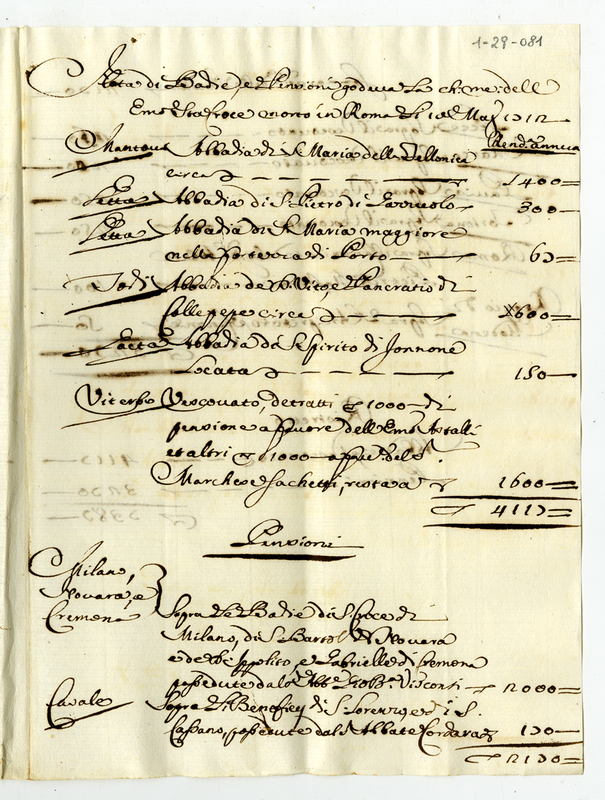 1-29-081
Nota di Badie, e Pensioni godeva la ch: me: dell
Emo Stafroce morto in Roma li Mag 1712
Rend. annua
Mantova Abbadia di S. Maria della
circa 1400
Abbadia di S. Pietro di 300
Abbadia di S. Maria maggiore
nella fortezza di Porto 63
Todi Abbadia de SS Vito, e Pancratio di
Collepepe circa 600
Gaeta Abbadia di S Spirito di Zonnone
Locata 150
Viterbo Vescovato, detratti 1000 di
pensione a favore dell Emo
et altri 1000 a fav. del S.
Marchese Sachetti, resta a 1600
4113
Pensioni
Milano,
Novara, e
Cremona Sopra le Badie di S. Croce di
Milano, di S. Bartol. di Novara
e de SS. Ippolito, e Gabrielle di Cremona
possedute dal Abb. Gio: B. Visconti 2000
Casale Sopra li Beneficij di S. Lorenzo, e di S.
Cassano, possedute dal Abbate Cordara 130
2130